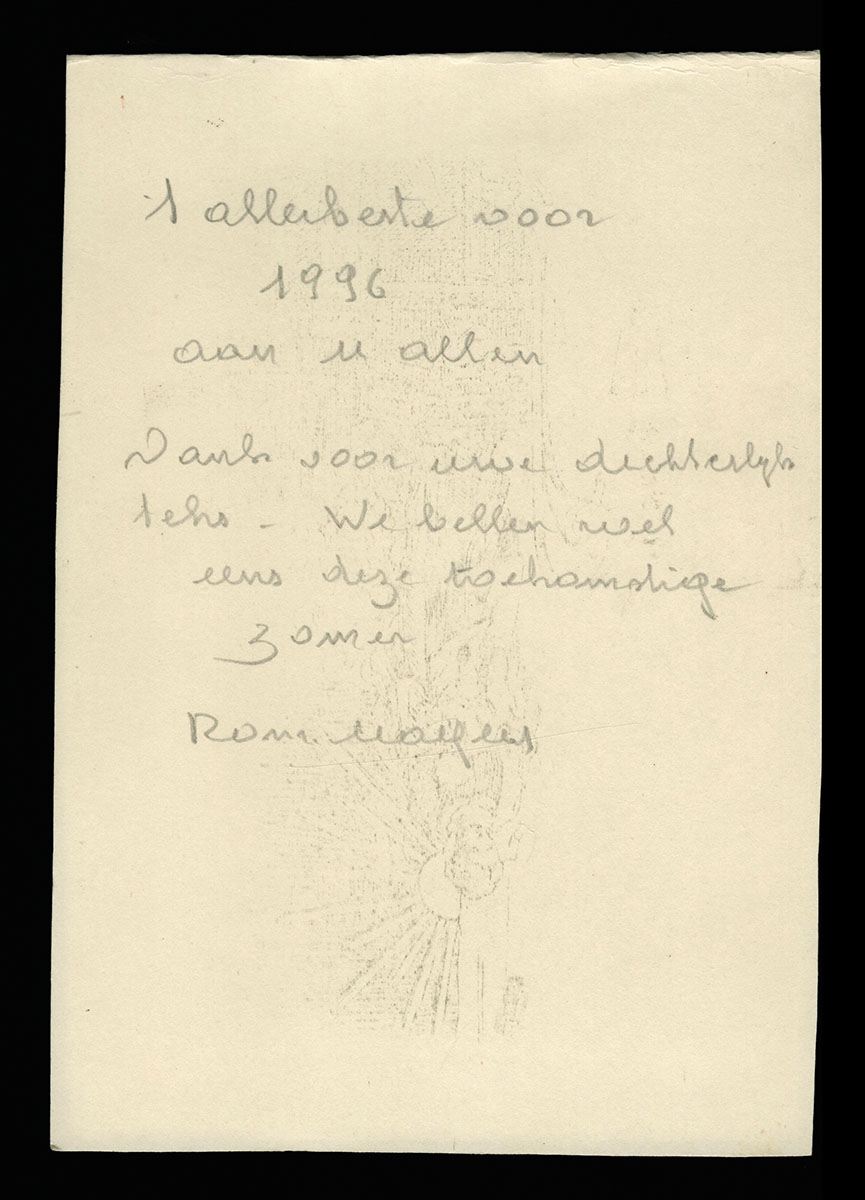 't allerbeste voor
1996
aan u allen
Dank voor uwe dichterlijk
teks - We bellen wel
eens deze toekomstige
zomer